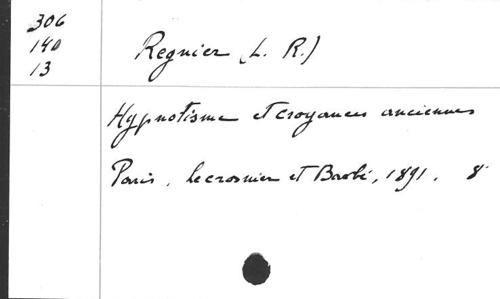 306
140
13
Regnier (L. R.)
Hypnotisme et croyances anciennes
Paris, Lecrosnier et Babé, 1891. 8°